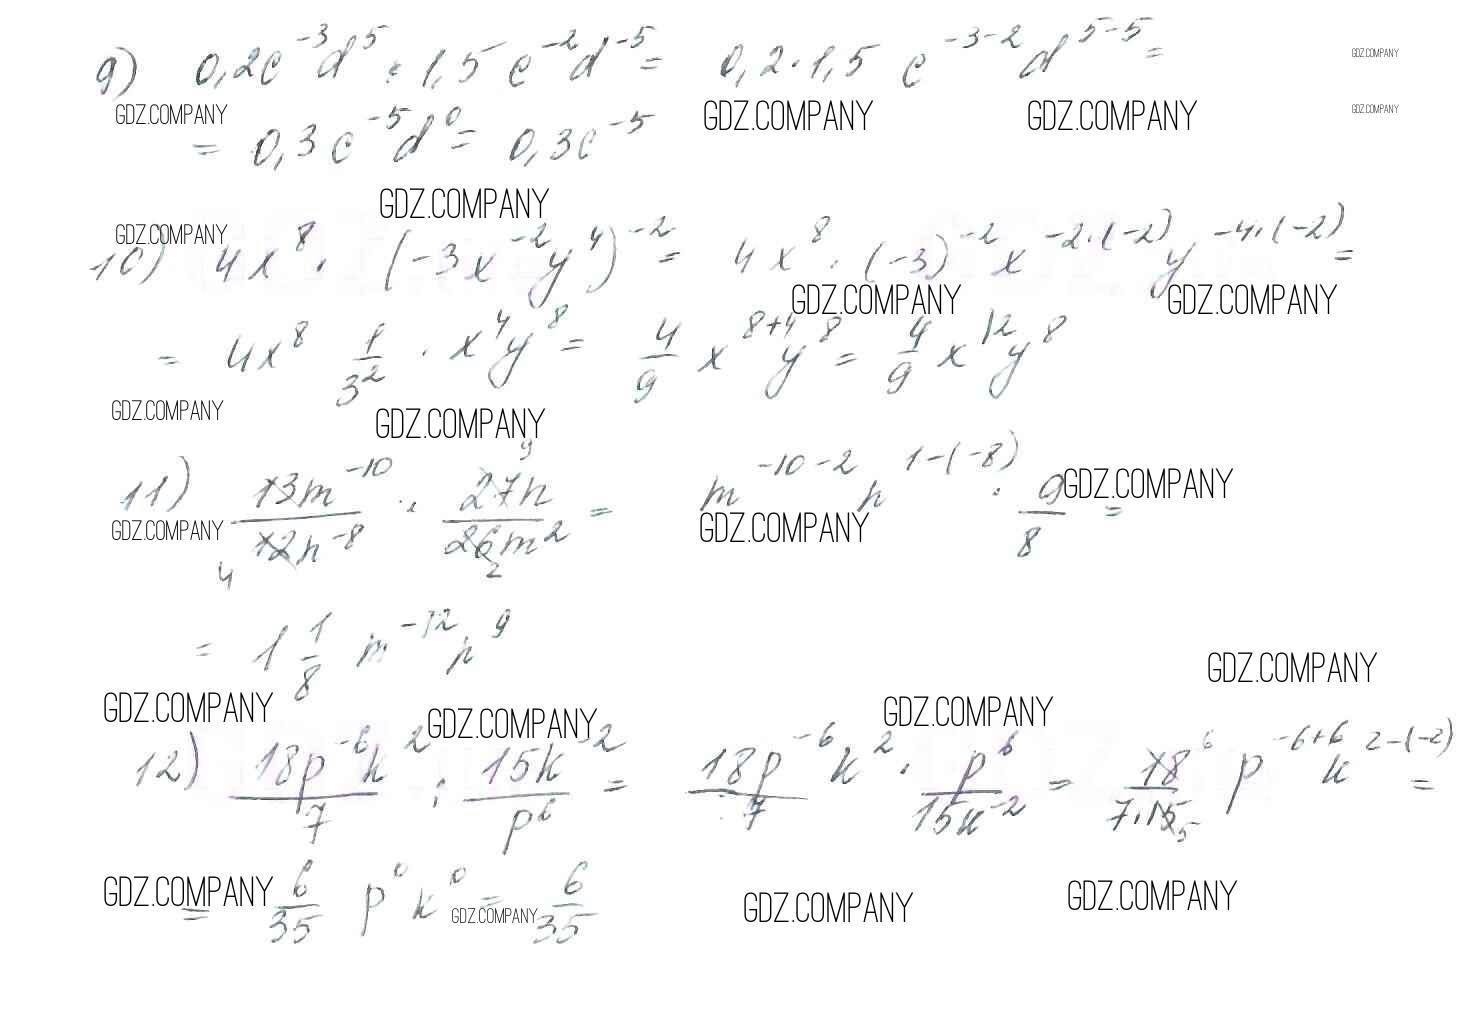 9) 0,2c^{-3}d^5 · 1,5c^{-2}d^{-5} = 0,2·1,5 c^{-3-2}d^{5-5} =
GDZ.COMPANY
GDZ.COMPANY GDZ.COMPANY GDZ.COMPANY GDZ.COMPANY
= 0,3c^{-5}d^0 = 0,3c^{-5}
GDZ.COMPANY
GDZ.COMPANY
10) 4x^8 · (-3x^{-2}y^4)^{-2} = 4x^8 · (-3)^{-2} x^{-2·(-2)} y^{-4·(-2)} =
GDZ.COMPANY GDZ.COMPANY
= 4x^8 \frac{1}{3^2} · x^4y^8 = \frac{4}{9} x^{8+4}y^8 = \frac{4}{9} x^{12}y^8
GDZ.COMPANY GDZ.COMPANY
11) \frac{13m^{-10}}{12n^{-8}} · \frac{27n}{26m^2} = m^{-10-2} n^{1-(-8)} · \frac{9}{8} =
9
4 2
GDZ.COMPANY GDZ.COMPANY GDZ.COMPANY
= 1\frac{1}{8} m^{-12}n^9
GDZ.COMPANY
GDZ.COMPANY GDZ.COMPANY GDZ.COMPANY
12) \frac{18p^{-6}k^2}{7} : \frac{15k^{-2}}{p^6} = \frac{18p^{-6}k^2}{7} · \frac{p^6}{15k^{-2}} = \frac{18}{7·15} p^{-6+6} k^{2-(-2)} =
6
5
GDZ.COMPANY GDZ.COMPANY GDZ.COMPANY GDZ.COMPANY
= \frac{6}{35} p^0k^0 = \frac{6}{35}